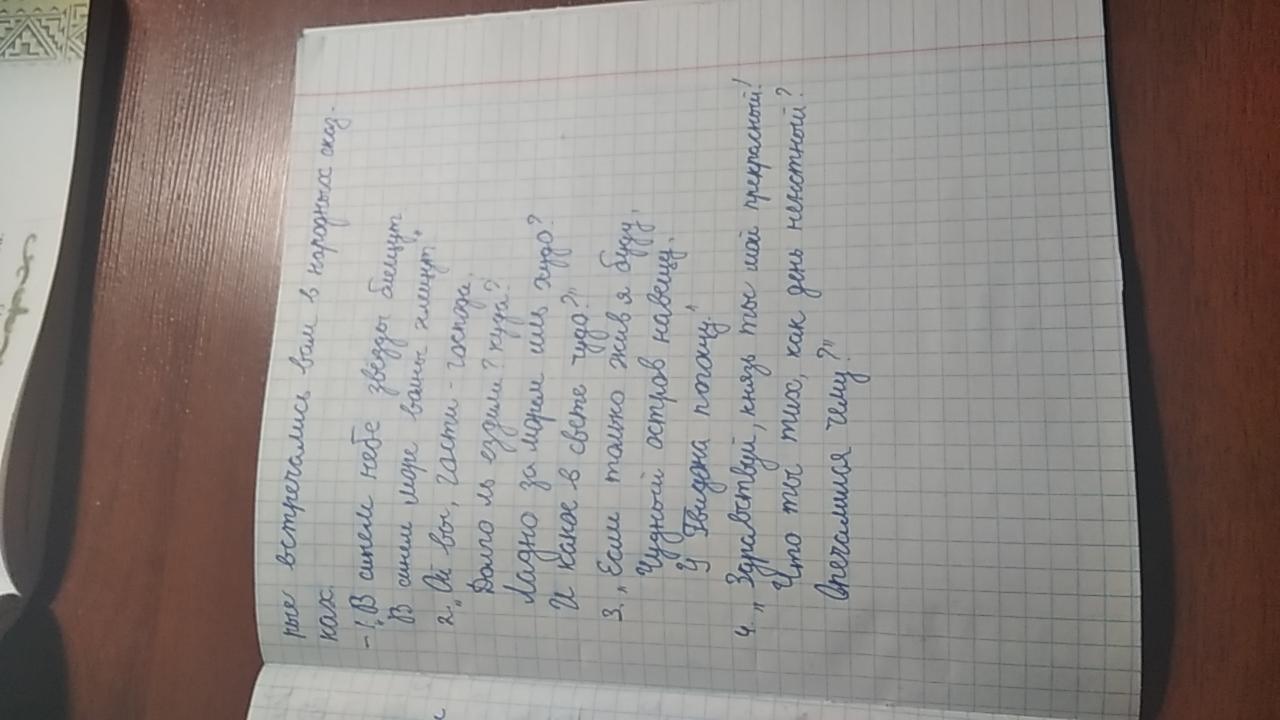 рые встречались вам в народных сказ-
ках.
– 1. „В синем небе звезды блещут
В синем море волны хлещут".
2. „Ой вы, гости - господа,
Долго ль ездили? куда?
Ладно за морем иль худо?
И какое в свете чудо?"
3. „Если только жив я буду,
Чудный остров навещу,
У Гвидона погощу".
4. „Здравствуй, князь ты мой прекрасный!
Что ты тих, как день ненстный?
Опечалился чему?"